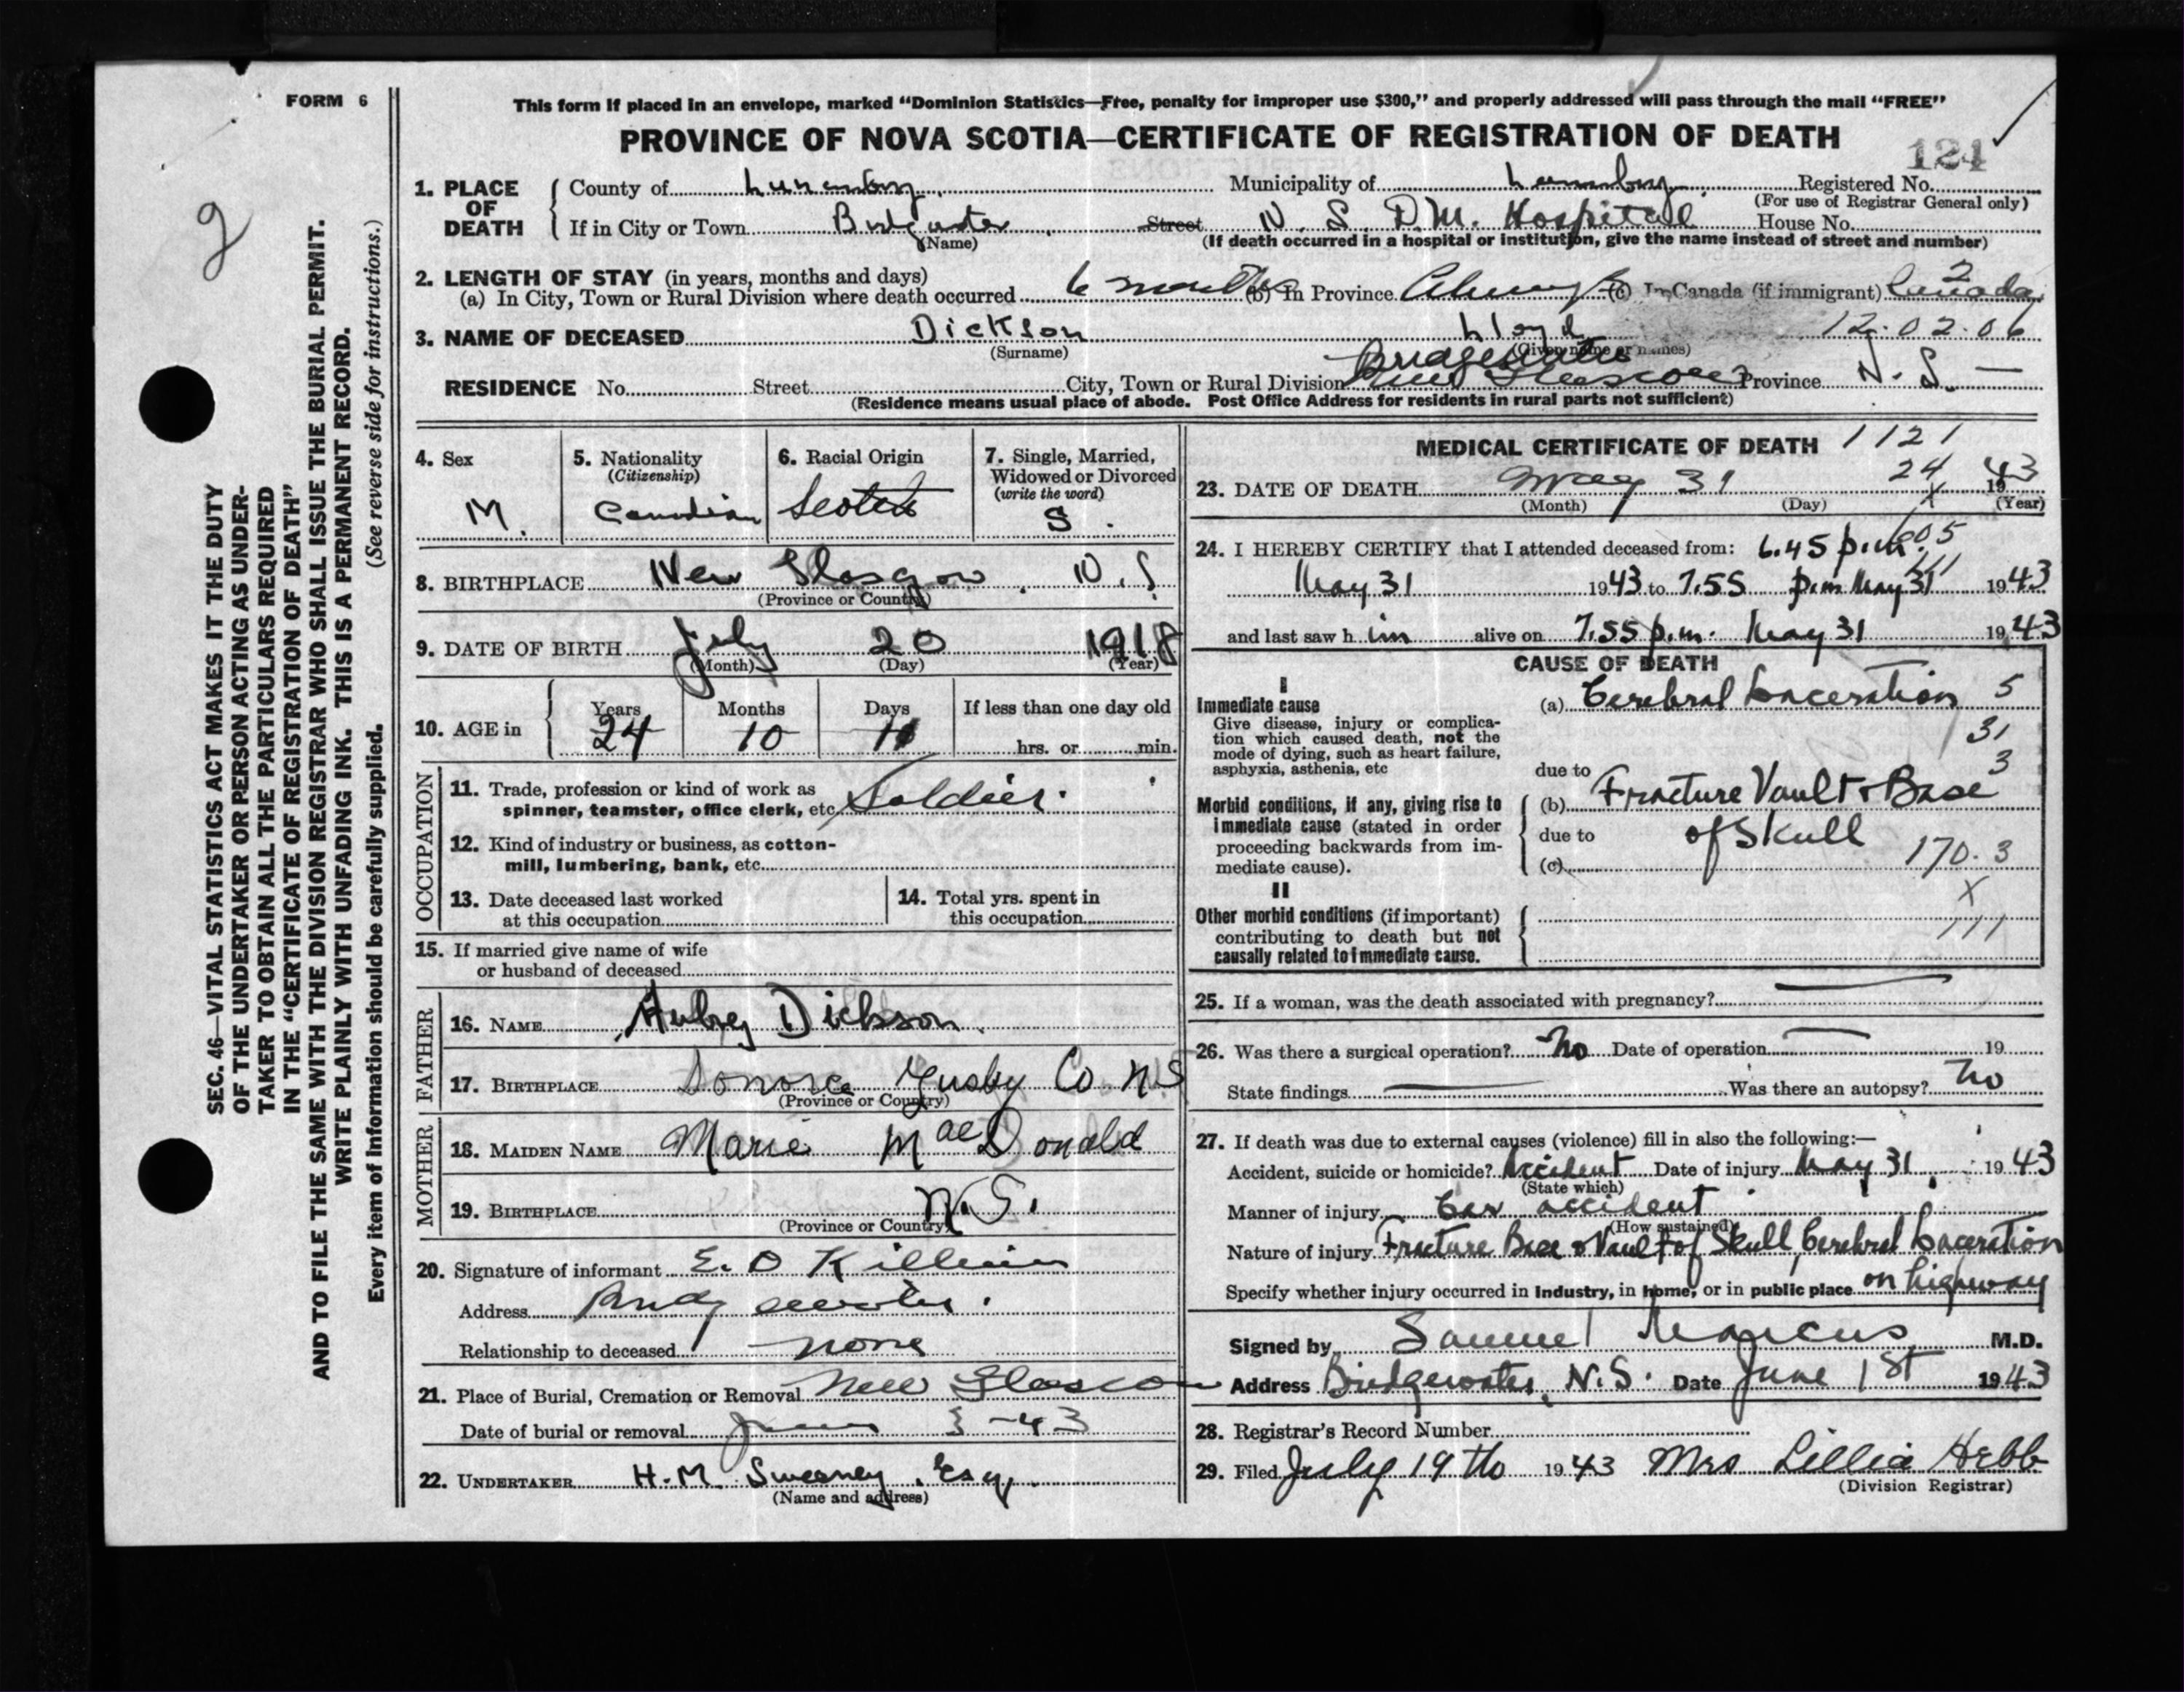 FORM 6
This form if placed in an envelope, marked “Dominion Statistics—Free, penalty for improper use $300,” and properly addressed will pass through the mail “FREE”
PROVINCE OF NOVA SCOTIA—CERTIFICATE OF REGISTRATION OF DEATH
121
2
SEC. 46—VITAL STATISTICS ACT MAKES IT THE DUTY
OF THE UNDERTAKER OR PERSON ACTING AS UNDER-
TAKER TO OBTAIN ALL THE PARTICULARS REQUIRED
IN THE “CERTIFICATE OF REGISTRATION OF DEATH”
AND TO FILE THE SAME WITH THE DIVISION REGISTRAR WHO SHALL ISSUE THE BURIAL PERMIT.
WRITE PLAINLY WITH UNFADING INK. THIS IS A PERMANENT RECORD.
Every item of information should be carefully supplied. (See reverse side for instructions.)
1. PLACE OF DEATH County of Lunenburg Municipality of Lunenburg Registered No.
(For use of Registrar General only)
If in City or Town Bridgewater Street N. S. D.M. Hospital House No.
(Name) (If death occurred in a hospital or institution, give the name instead of street and number)
2. LENGTH OF STAY (in years, months and days) 2
(a) In City, Town or Rural Division where death occurred 6 months (b) In Province Always (c) In Canada (if immigrant) Canada
3. NAME OF DECEASED Dickson Lloyd 12.02.06
(Surname) (Given name or names)
Bridgewater
RESIDENCE No. Street City, Town or Rural Division New Glascow Province N. S. —
(Residence means usual place of abode. Post Office Address for residents in rural parts not sufficient)
4. Sex M.
5. Nationality (Citizenship) Canadian
6. Racial Origin Scotch
7. Single, Married, Widowed or Divorced (write the word) S.
8. BIRTHPLACE New Glasgow. N.S
(Province or Country)
9. DATE OF BIRTH July 20 1918
(Month) (Day) (Year)
10. AGE in Years 24 Months 10 Days 11 If less than one day old
hrs. or min.
OCCUPATION
11. Trade, profession or kind of work as
spinner, teamster, office clerk, etc. Soldier.
12. Kind of industry or business, as cotton-
mill, lumbering, bank, etc.
13. Date deceased last worked
at this occupation
14. Total yrs. spent in
this occupation
15. If married give name of wife
or husband of deceased
FATHER
16. NAME Aubrey Dickson
17. BIRTHPLACE Sonora Gusby Co. N.S
(Province or Country)
MOTHER
18. MAIDEN NAME Marie MacDonald
19. BIRTHPLACE N.S.
(Province or Country)
20. Signature of informant E. D Killam
Address Bridgewater.
Relationship to deceased none
21. Place of Burial, Cremation or Removal New Glascow
Date of burial or removal June 3 -43
22. UNDERTAKER H.M. Sweeney. Esq.
(Name and address)
MEDICAL CERTIFICATE OF DEATH 1121
24
23. DATE OF DEATH May 31 X 1943
(Month) (Day) (Year)
24. I HEREBY CERTIFY that I attended deceased from: 6.45 p.m.
May 31 1943 to 7.55 p.m May 31 1943
and last saw him alive on 7.55 p.m. May 31 1943
CAUSE OF DEATH
I
Immediate cause
Give disease, injury or complica-
tion which caused death, not the
mode of dying, such as heart failure,
asphyxia, asthenia, etc
(a) Cerebral Laceration 5
31
3
due to
Morbid conditions, if any, giving rise to
immediate cause (stated in order
proceeding backwards from im-
mediate cause).
(b) Fracture Vault & Base
due to of Skull
(c) 170.3
II
X
Other morbid conditions (if important)
contributing to death but not
causally related to immediate cause.
111
25. If a woman, was the death associated with pregnancy? —
26. Was there a surgical operation? No Date of operation — 19
State findings — Was there an autopsy? No
27. If death was due to external causes (violence) fill in also the following:—
Accident, suicide or homicide? Accident Date of injury May 31 1943
(State which)
Manner of injury Car accident
(How sustained)
Nature of injury Fracture Base & Vault of Skull, Cerebral Laceration
Specify whether injury occurred in industry, in home, or in public place on highway
Signed by Samuel Marcus M.D.
Address Bridgewater, N.S. Date June 1st 1943
28. Registrar’s Record Number
29. Filed July 19th 1943 Mrs Lillia Hebb
(Division Registrar)